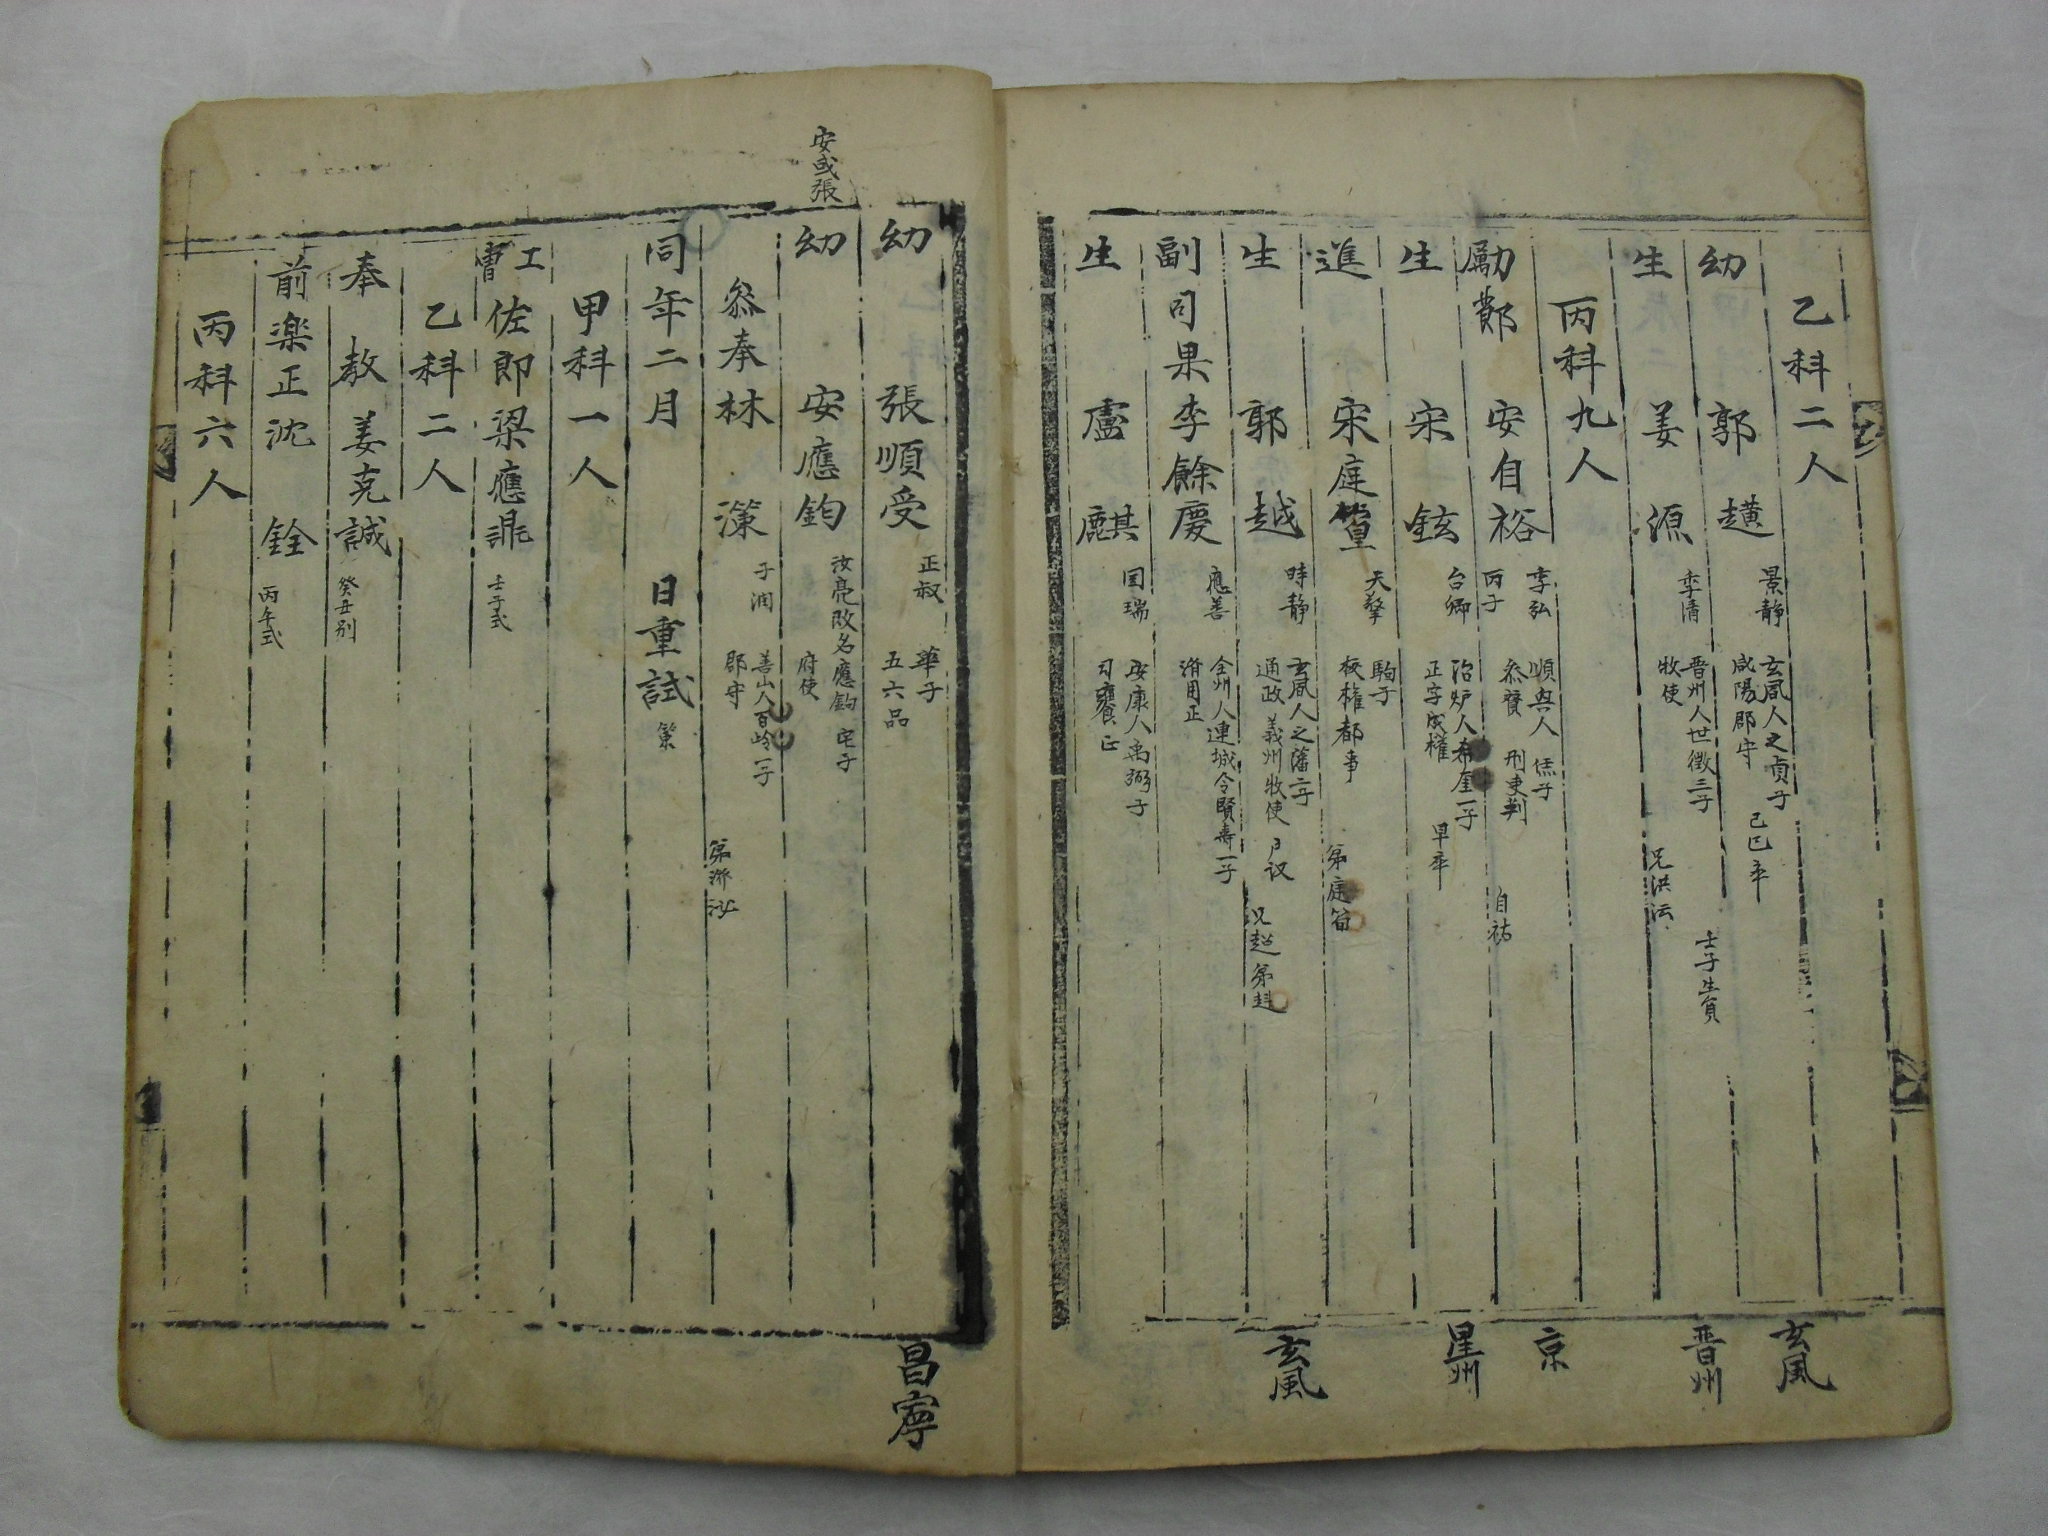 乙科二人
幼 郭䞋 景靜 玄風人之貞子 咸陽郡守 己巳卒 玄風
生 姜源 李清 晋州人世徵三子 牧使 兄洪沄 壬子生員 晋州
丙科九人
勵鄭 安自裕 季弘 丙子 順興人 恷子 叅賛 刑吏判 自祐 京
生 宋鉉 台卿 冶炉人希奎一子 正字成權 早卒 星州
進 宋庭篁 天擎 駒子 校權都事 弟庭筍
生 郭越 時靜 玄風人之藩二子 通政 義州牧使 戸议 兄超 弟赶 玄風
副司果李餘慶 應善 全州人連城令賢壽一子 済用正
生 盧麒 囯瑞 安康人禹弼子 司饔正
安或張
幼 張順受 正叔 華子 五六品 昌寧
幼 安應鈞 汝亮改名應鈞 宅子 府使
叅奉林㵛 子润 善山人百岭一子 郡守 弟濟 泌
同年二月 日重試 策
甲科一人
工曹佐郎梁應鼎 壬子式
乙科二人
奉教姜克誠 癸丑别
前楽正沈銓 丙午式
丙科六人